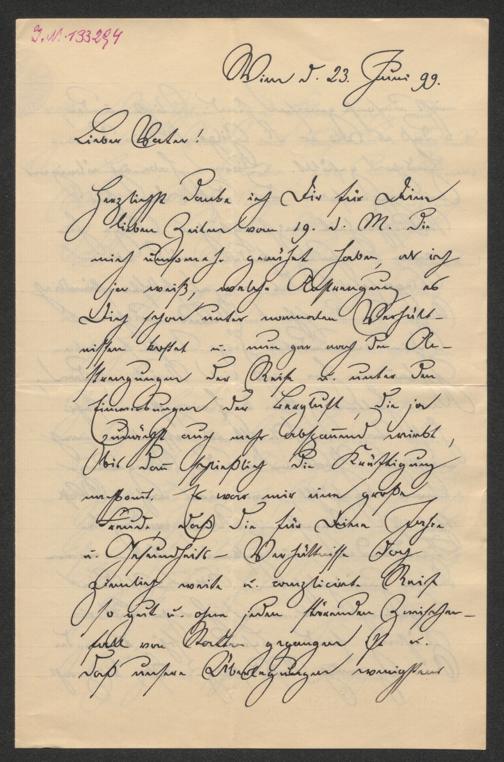 J.N. 133294
Wien d. 23. Juni 99.
Lieber Vater!
Herzlichst danke ich Dir für Deine
lieben Zeilen vom 19. d. M. die
mich umsomehr gerührt haben, als ich
ja weiß, welche Anstrengung es
Dich schon unter normalen Verhält-
nissen kostet u. nun gar nach den An-
strengungen der Reise u. unter den
Einwirkungen der Bergluft, die ja
zunächst auch mehr abspannend wirkt,
bis dann schließlich die Kräftigung
nachkommt. Es war mir eine große
Freude, daß die für Deine Jahre
u. Gesundheits-Verhältnisse doch
ziemlich weite u. complicirte Reise
so gut u. ohne jeden störenden Zwischen-
fall von Statten gegangen ist u.
daß unsere Überlegungen wenigstens